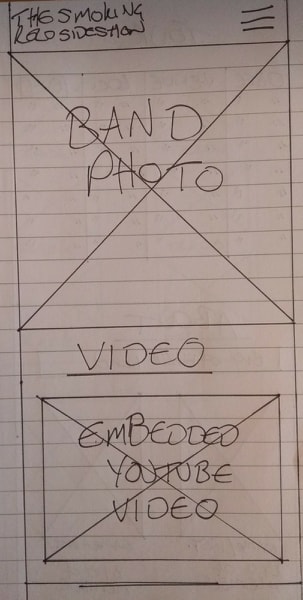 THE SMOKING
ROADSIDESHOW
BAND
PHOTO
VIDEO
EMBEDDED
YOUTUBE
VIDEO